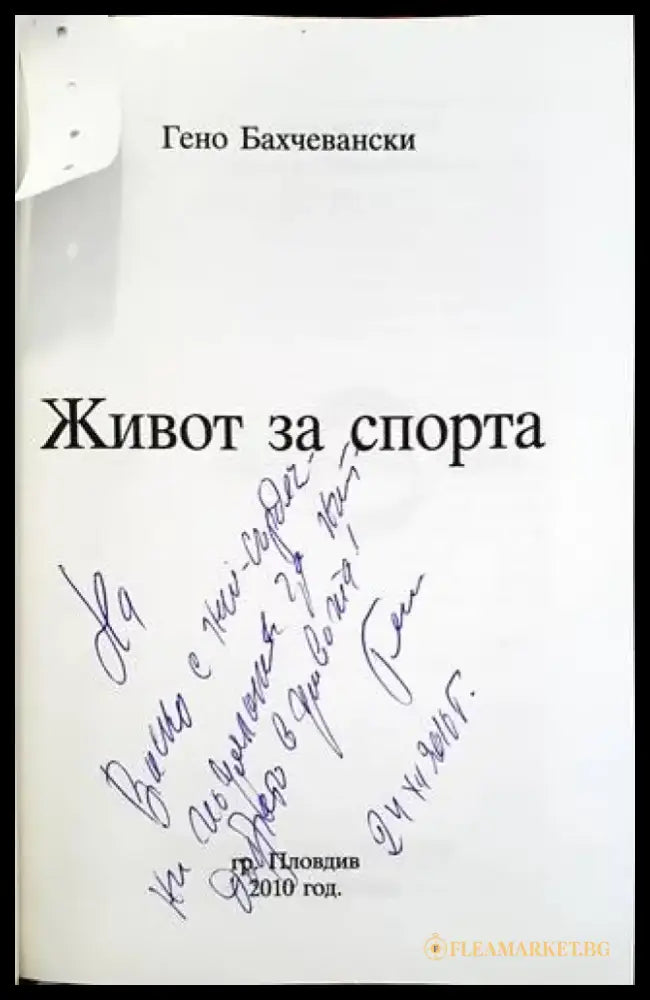 Гено Бахчевански
Живот за спорта
На
Васко с най-сърдеч-
ни пожелания за най-
доброто в живота!
Гено
24 XII 2010 г.
гр. Пловдив
2010 год.
FLEAMARKET.BG